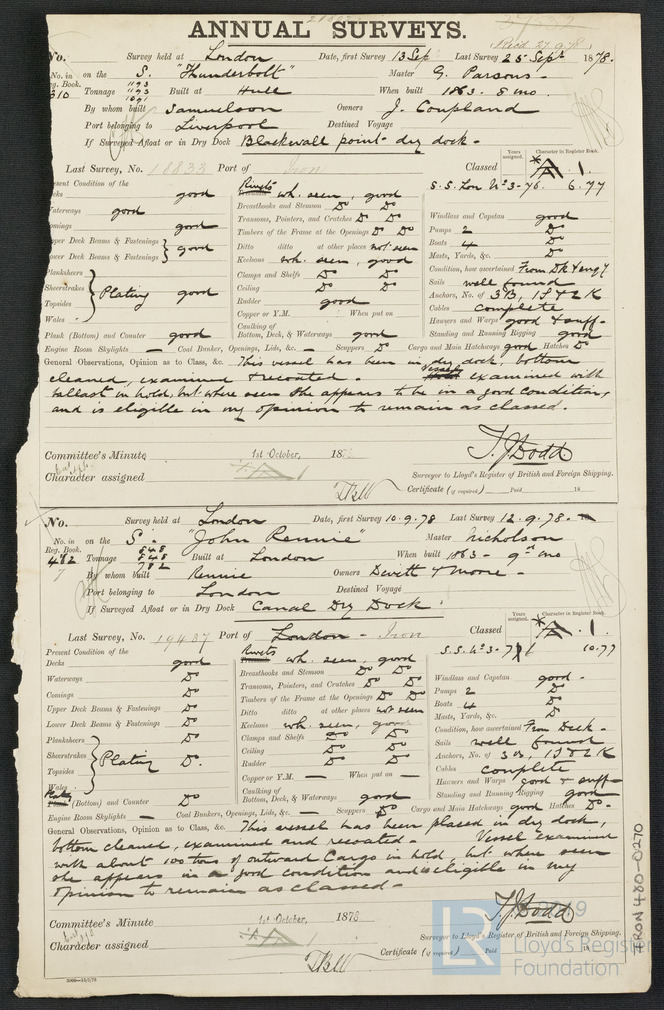 ANNUAL SURVEYS.
Recd 27.9.78
No. Survey held at London Date, first Survey 13 Sep Last Survey 25 Sept 1878.
No. in on the S. "Thunderbolt" Master G. Parsons.
Reg. Book. 1193
310 Tonnage 1193 Built at Hull When built 1863. 8 mo.
1091
By whom built Samuelson Owners J. Coupland
Port belonging to Liverpool Destined Voyage
If Surveyed Afloat or in Dry Dock Blackwall point dry dock.
Years assigned. Character in Register Book.
Last Survey, No. 18833 Port of Iron Classed *A.1.
Present Condition of the Rivets wh. seen, good S.S. Lon No 3-76. 6.77
Decks good Breasthooks and Stemson Do Do
Waterways good Transoms, Pointers, and Crutches Do Do Windlass and Capstan good
Comings good Timbers of the Frame at the Openings Do Do Pumps 2 Do
Upper Deck Beams & Fastenings } good Ditto ditto at other places not seen Boats 4 Do
Lower Deck Beams & Fastenings Keelsons wh. seen, good Masts, Yards, &c. Do
Planksheers Clamps and Shelfs Do Do Condition, how ascertained From Dk & eng7
Sheerstrakes } Plating good Ceiling Do Do Sails well found
Topsides Rudder good Anchors, No. of 3B, 1S & 2K
Wales Copper or Y.M. When put on Cables complete
Caulking of Hawsers and Warps good & suff-
Plank (Bottom) and Counter good Bottom, Deck, & Waterways good Standing and Running Rigging good
Engine Room Skylights — Coal Bunker, Openings, Lids, &c. — Scuppers Do Cargo and Main Hatchways good Hatches Do
General Observations, Opinion as to Class, &c. This vessel has been in dry dock, bottom
cleaned, examined & recoated. Vessel examined with
ballast in hold, but where seen she appears to be in a good condition,
and is eligible in my opinion to remain as classed.
Committee's Minute 1st October, 187
Character assigned A 1
T. J. Dodd
Surveyor to Lloyd's Register of British and Foreign Shipping.
Certificate (if required) Paid 18
No. Survey held at London Date, first Survey 10.9.78 Last Survey 12.9.78.
No. in on the S. "John Rennie" Master Nicholson
Reg. Book. 848
482 Tonnage 848 Built at London When built 1863. 9 mo
782
By whom built Rennie Owners Devitt & Moore.
Port belonging to London Destined Voyage
If Surveyed Afloat or in Dry Dock Canal Dry Dock.
Years assigned. Character in Register Book.
Last Survey, No. 19437 Port of London - Iron Classed *A.1.
Present Condition of the Rivets wh. seen, good S.S. No 3- 10.77
Decks good Breasthooks and Stemson Do Do
Waterways Do Transoms, Pointers, and Crutches Do Do Windlass and Capstan good
Comings Do Timbers of the Frame at the Openings Do Do Pumps 2 Do
Upper Deck Beams & Fastenings Do Ditto ditto at other places not seen Boats 4 Do
Lower Deck Beams & Fastenings Do Keelsons wh. seen, good Masts, Yards, &c. Do
Planksheers Do Clamps and Shelfs Do Do Condition, how ascertained From Deck.
Sheerstrakes } Plating Do. Ceiling Do Do Sails well found
Topsides Rudder Do Do Anchors, No. of 3B, 1S & 2K
Wales Copper or Y.M. — When put on — Cables complete
Caulking of Hawsers and Warps good & suff-
Plating (Bottom) and Counter Do Bottom, Deck, & Waterways good Standing and Running Rigging good
Engine Room Skylights — Coal Bunkers, Openings, Lids, &c. — Scuppers Do Cargo and Main Hatchways good Hatches Do
General Observations, Opinion as to Class, &c. This vessel has been placed in dry dock,
bottom cleaned, examined and recoated. Vessel examined
with about 100 tons of outward Cargo in hold, but where seen
she appears in a good condition and eligible in my
opinion to remain as classed.
Committee's Minute 1st October, 1878
Character assigned A 1
T. J. Dodd
Surveyor to Lloyd's Register of British and Foreign Shipping.
Certificate (if required) Paid 18
IRON 480-0270
LR
2019
Lloyd's Register
Foundation